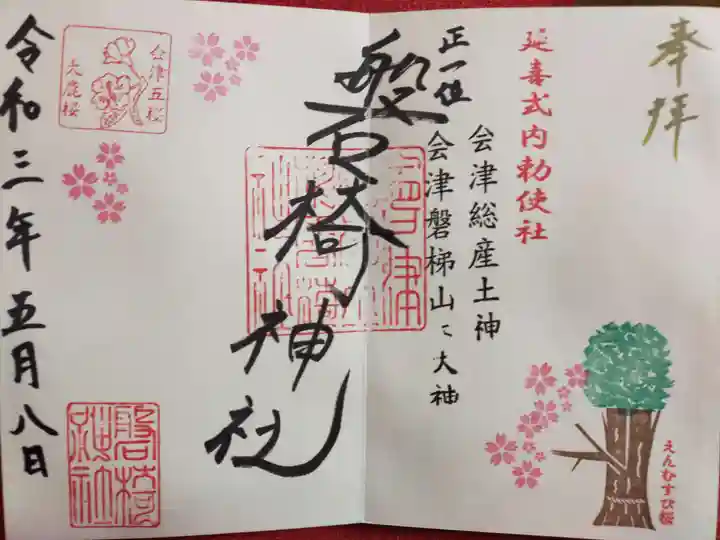 奉拝
延喜式内勅使社
正一位
会津総産土神
会津磐梯山大神
えんむすび桜
磐椅神社
会津五桜
大鹿桜
令和三年五月八日
磐椅神社